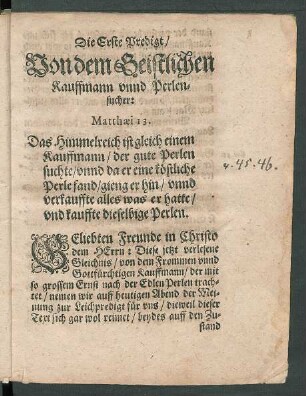 Die Erste Predigt/
Von dem Geistlichen
Kauffmann vnnd Perlen-
sucher:
Matthæi 13.
Das Himmelreich ist gleich einem
Kauffmann/ der gute Perlen
suchte/ vnnd da er eine köstliche
Perle fand/ gieng er hin/ vnnd
verkauffte alles was er hatte/
vnd kauffte dieselbige Perlen.
v. 45. 46.
GEliebten Freunde in Christo
dem HErrn: Diese jetzt verlesene
Gleichnis/ von dem Frommen vnnd
Gottfürchtigen Kauffmann/ der mit
so grossem Ernst nach der Edlen Perlen trach-
tet/ nemen wir auff heutigen Abend der Mei-
nung zur Leichpredigt für vns/ dieweil dieser
Text sich gar wol reimet/ beydes auff den Zu-
stand